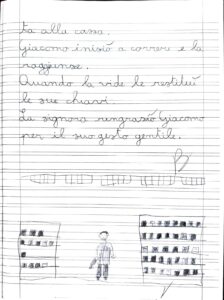 ta alla cassa.
Giacomo iniziò a correre e la
raggiunse.
Quando la vide le restituì
le sue chiavi.
La signora ringraziò Giacomo
per il suo gesto gentile.
B